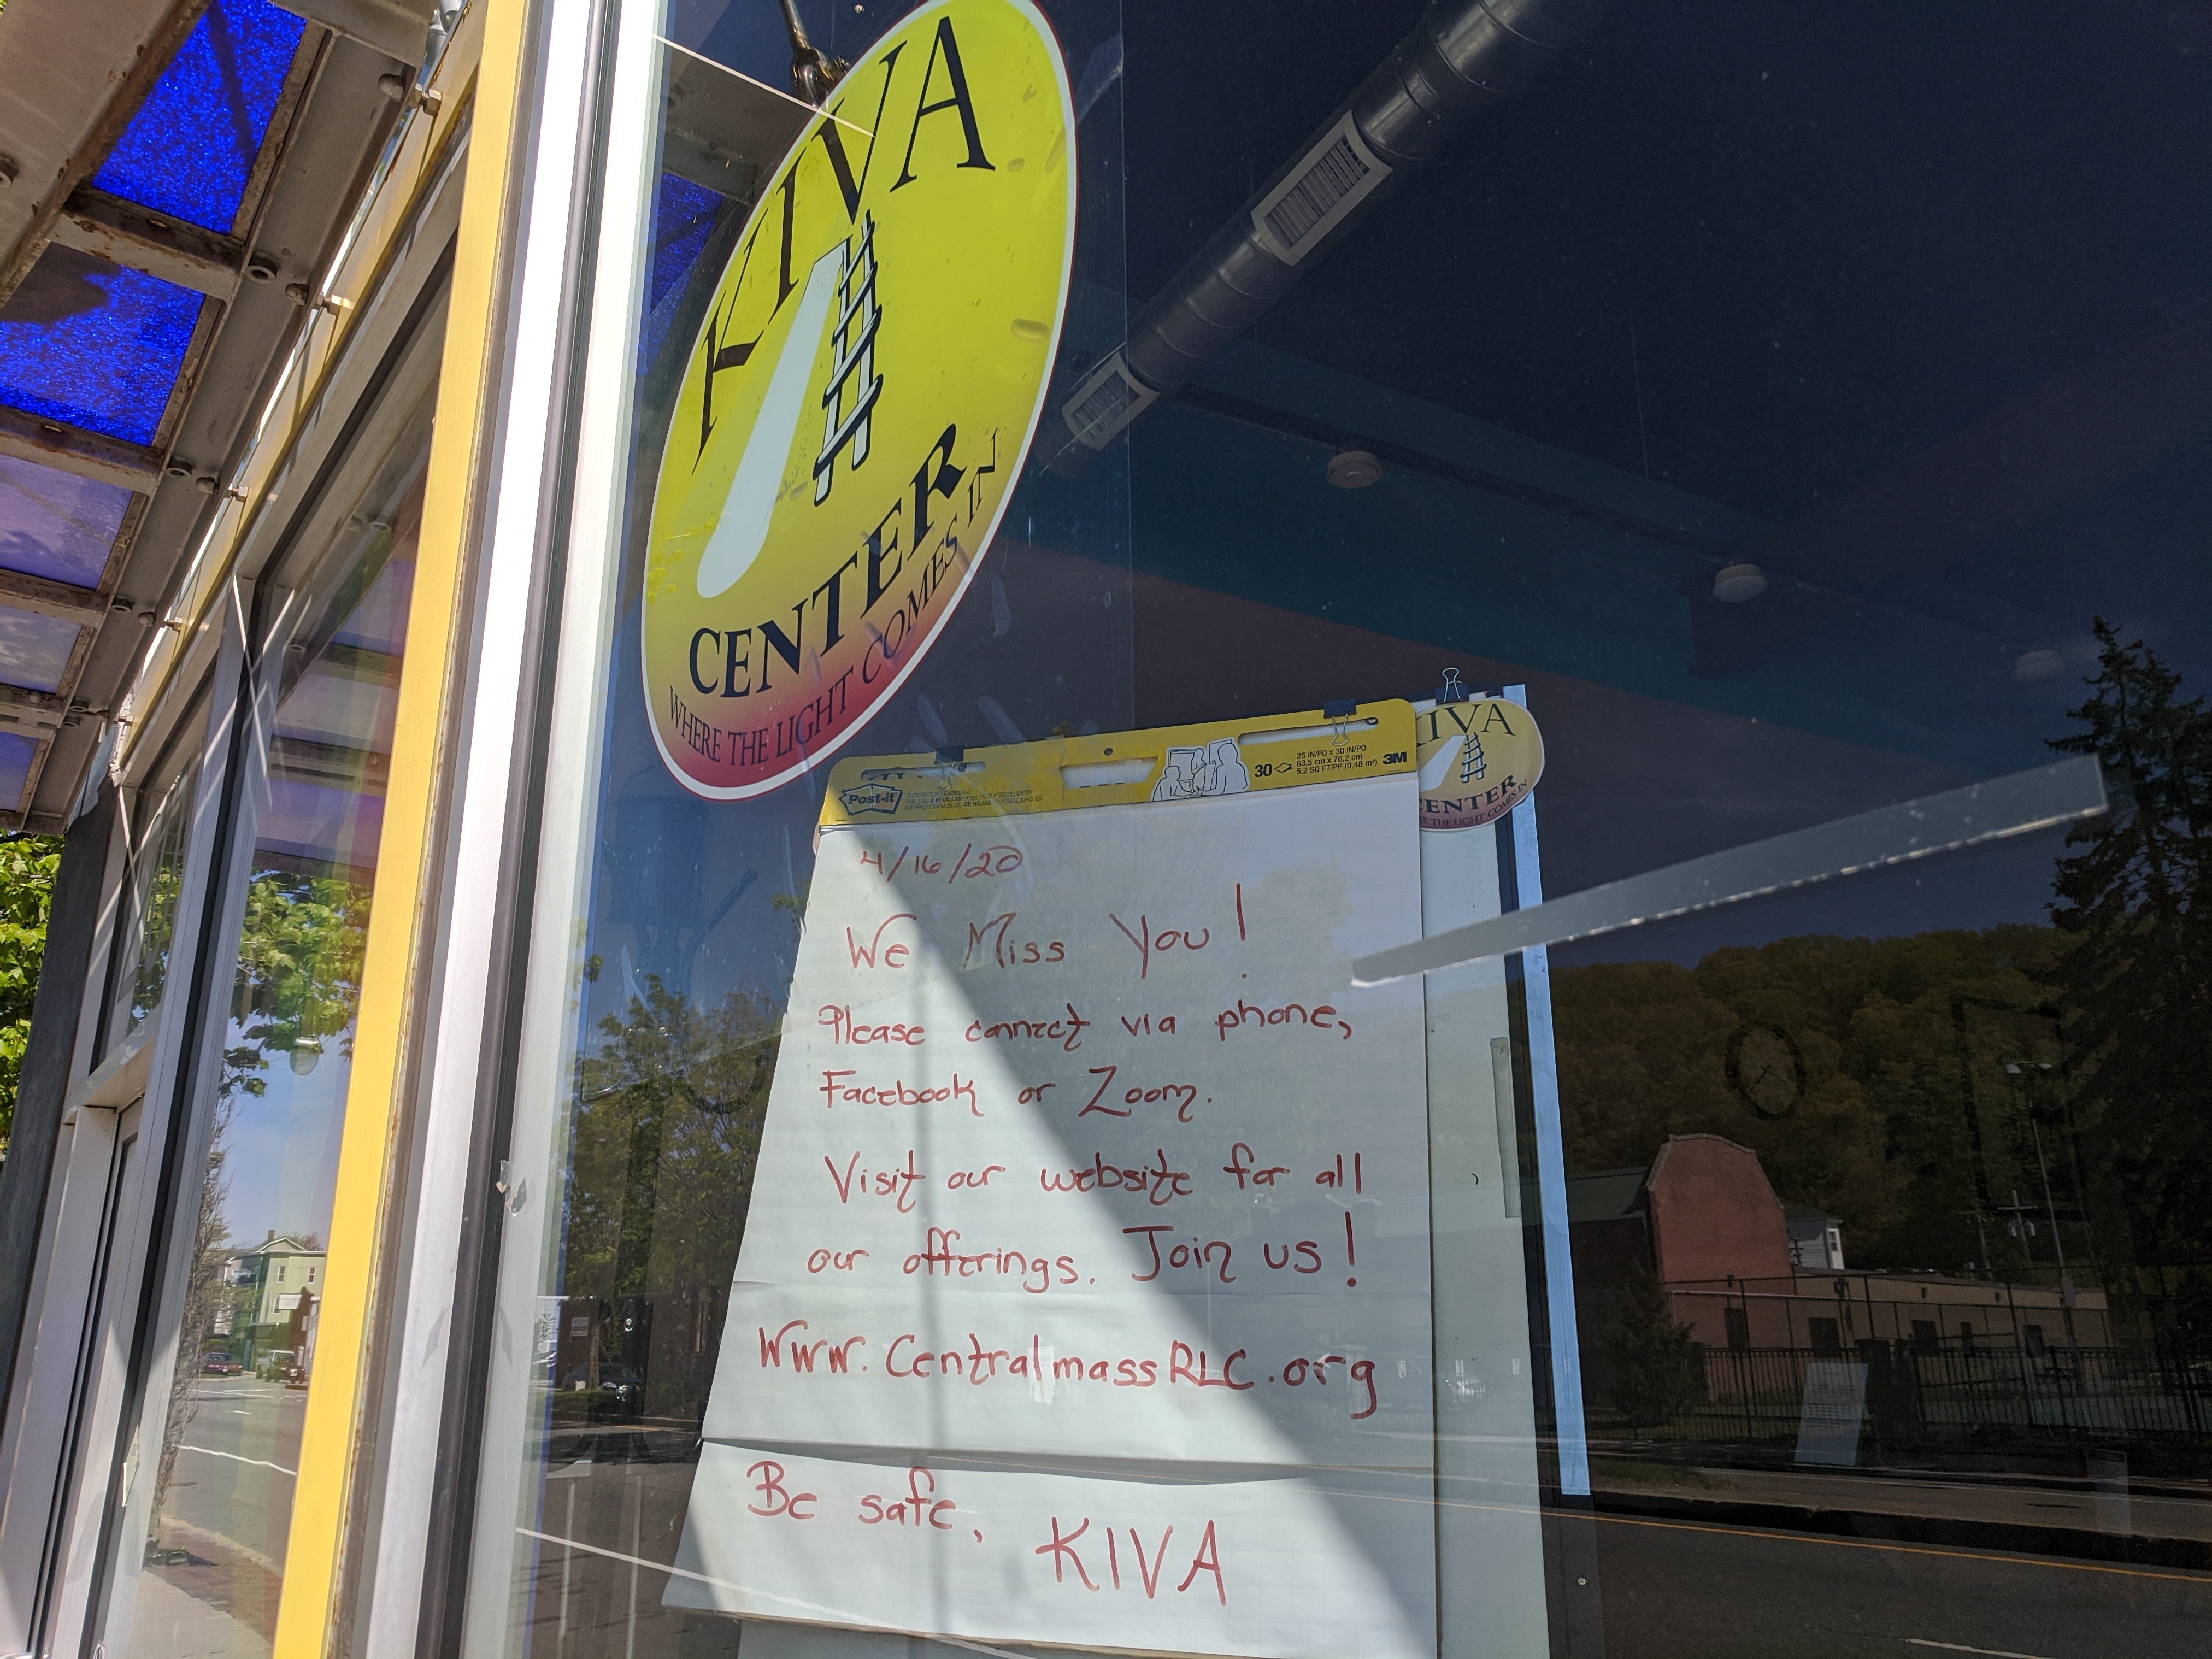 KIVA
CENTER
WHERE THE LIGHT COMES IN
Post-it
30
25 IN/PO x 30 IN/PO
63,5 cm x 76,2 cm
5.2 SQ FT/PP (0,48 m²)
3M
KIVA
CENTER
THE LIGHT COMES IN
4/16/20
We Miss You!
Please connect via phone,
Facebook or Zoom.
Visit our website for all
our offerings. Join us!
Www.CentralmassRLC.org
Be safe,
KIVA